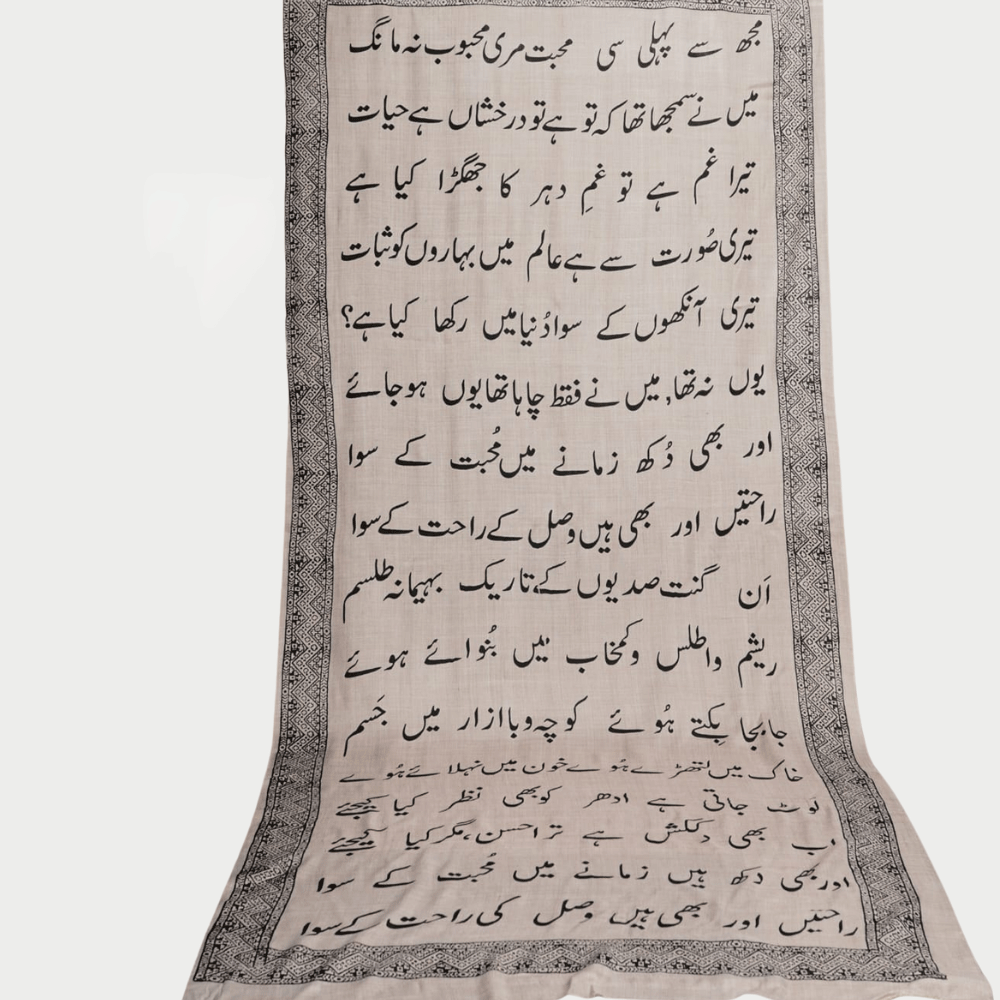 مجھ سے پہلی سی محبت مری محبوب نہ مانگ
میں نے سمجھا تھا کہ تو ہے تو درخشاں ہے حیات
تیرا غم ہے تو غمِ دہر کا جھگڑا کیا ہے
تیری صُورت سے ہے عالم میں بہاروں کو ثبات
تیری آنکھوں کے سوا دُنیا میں رکھا کیا ہے؟
یوں نہ تھا, میں نے فقط چاہا تھا یوں ہو جائے
اور بھی دُکھ زمانے میں مُحبت کے سوا
راحتیں اور بھی ہیں وصل کے راحت کے سوا
اَن گنت صدیوں کے تاریک بہیمانہ طلسم
ریشم و اطلس و کمخاب میں بُنوائے ہوئے
جابجا بِکتے ہُوئے کوچہ و باازار میں جَسم
خاک میں لتھڑے ہُوے خون میں نہلائے ہُوے
لوٹ جاتی ہے ادھر کو بھی نظر کیا کیجئے
اب بھی دلکش ہے ترا حسن، مگر کیا کیجئے
اور بھی دکھ ہیں زمانے میں مُحبت کے سوا
راحتیں اور بھی ہیں وصل کی راحت کے سوا